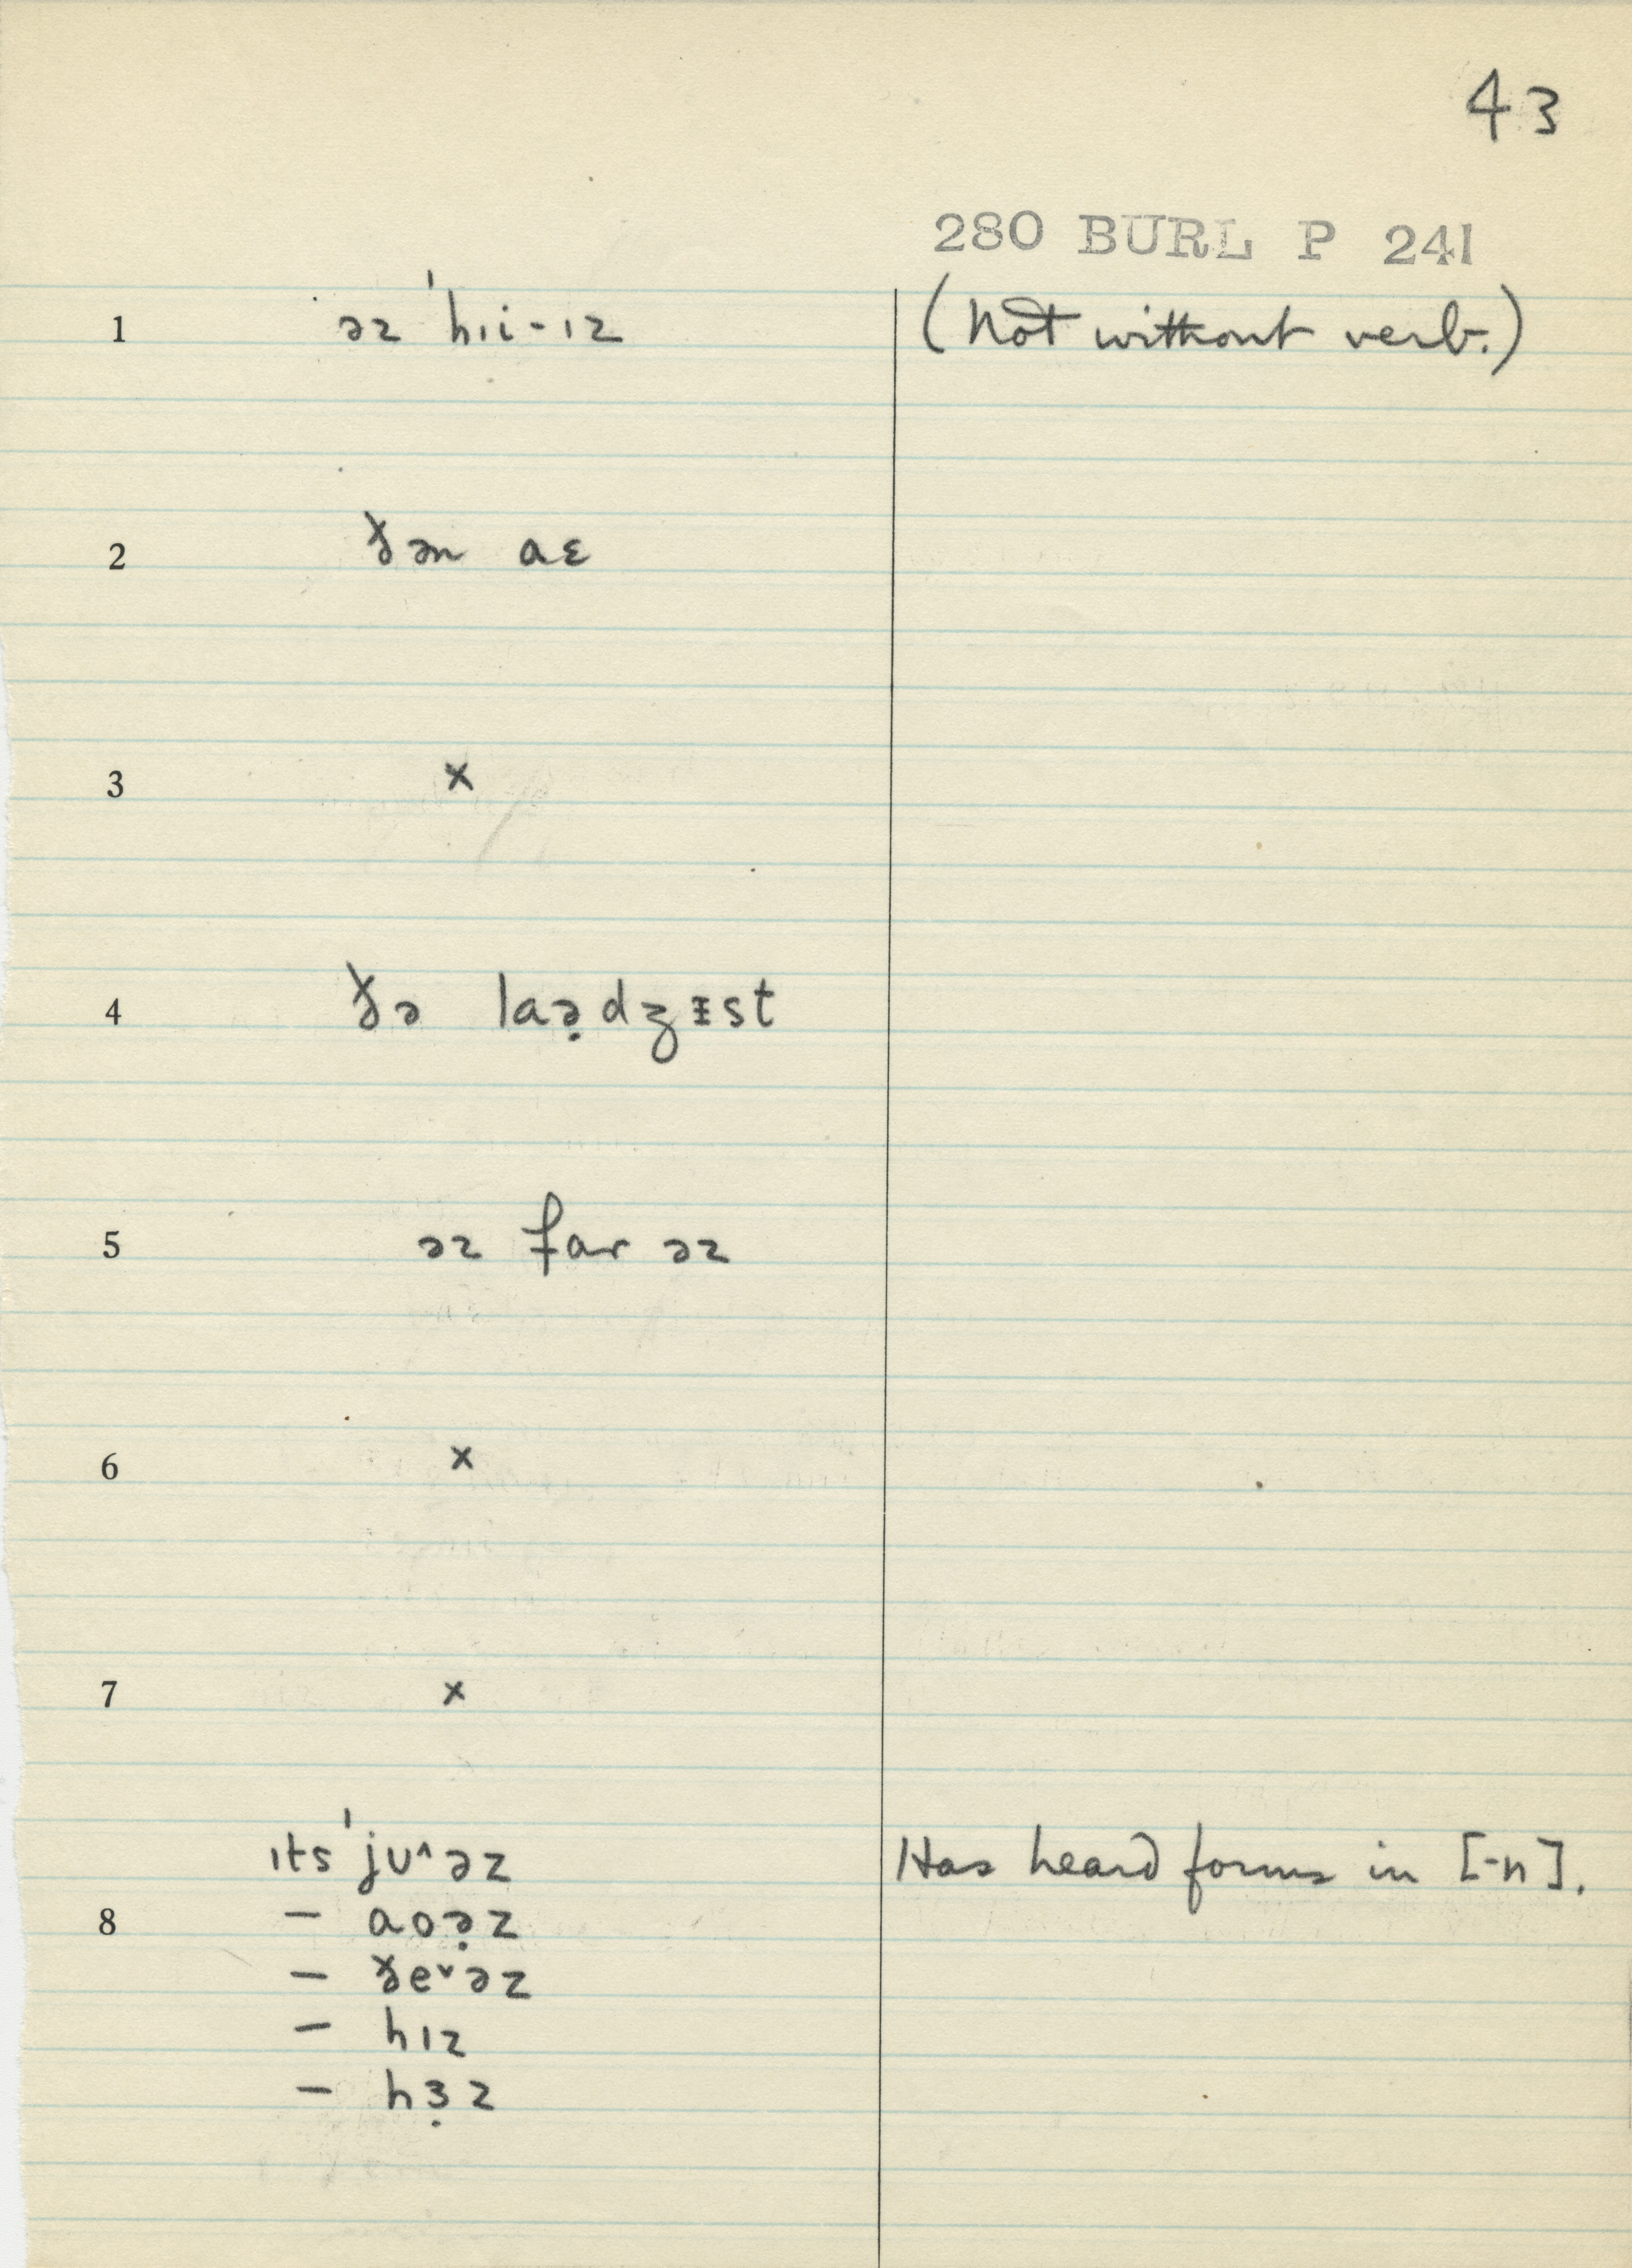 43
280 BURL P 241
1 əz ˈhɪi-ɪz (Not without verb.)
2 ðən aɛ
3 ×
4 ðə laə̣dʒɪ̵st
5 əz far əz
6 ×
7 ×
ɪts ˈjʊ^əz Has heard forms in [-n].
8 — aoə̣z
— ðe˅əz
— hɪz
— hɜ̣z